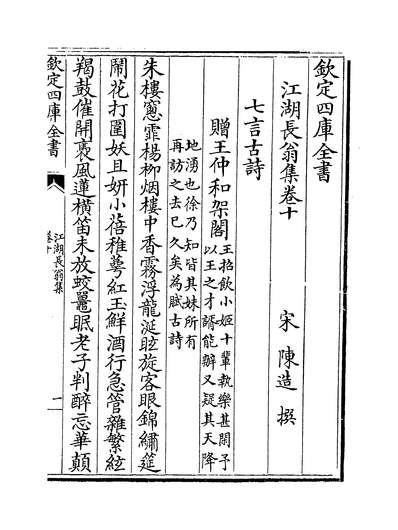 欽定四庫全書
江湖長翁集卷十
宋 陳造 撰
七言古詩
贈王仲和架閣
王招飲小姬十輩執樂甚閙予
以王之才謂能辦又疑其天降
地湧也徐乃知皆其妹所有
再訪之去已久矣為賦古詩
朱樓窻霏楊柳烟樓中香霧浮龍涎眩旋客眼錦繡筵
鬧花打圍妖且妍小蓓稚蕚紅玉鮮酒行急管雜繁絃
羯鼓催開裛風蓮橫笛未放蛟鼉眠老子判醉忘華顛
欽定四庫全書
江湖長翁集
卷十
一